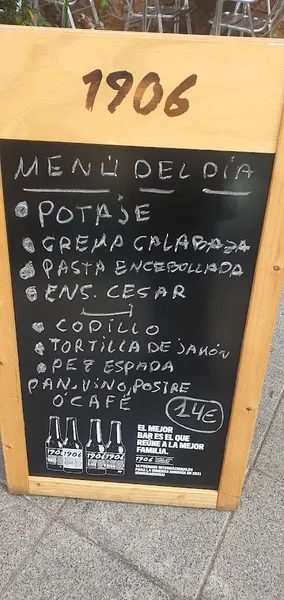 1906
MENÚ DEL DÍA
POTAJE
CREMA CALABAZA
PASTA ENCEBOLLADA
ENS. CESAR
CODILLO
TORTILLA DE JAMÓN
PEZ ESPADA
PAN, VINO, POSTRE
O CAFÉ
14€
EL MEJOR
BAR ES EL QUE
REÚNE A LA MEJOR
FAMILIA.
1906
1906 1906 1906 1906